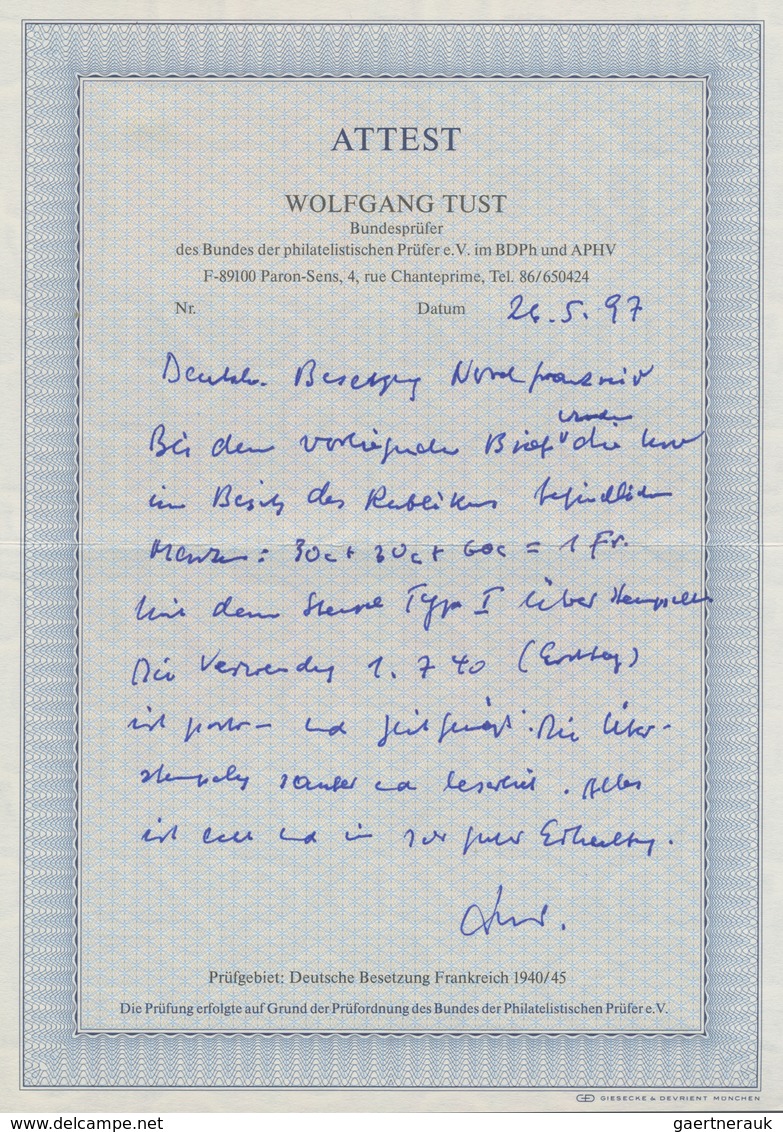 ATTEST
WOLFGANG TUST
Bundesprüfer
des Bundes der philatelistischen Prüfer e.V. im BDPh und APHV
F-89100 Paron-Sens, 4, rue Chanteprime, Tel. 86/650424
Nr. Datum 26.5.97
Deutsche Besetzung Nordfrankreich
wurden
Bei dem vorliegenden Brief die
im Besitz des Publikums befindlichen
Marken: 30c+ 30c+ 60c = 1 Fr.
mit dem Stempel Typ I überstempelt
Die Verwendung 1. 7 40 (Ersttag)
ist porto- und zeitgerecht. Die Über-
stempelung sauber und leserlich. Alles
ist echt und in sehr guter Erhaltung.
Tust.
Prüfgebiet: Deutsche Besetzung Frankreich 1940/45
Die Prüfung erfolgte auf Grund der Prüfordnung des Bundes der Philatelistischen Prüfer e.V.
GIESECKE & DEVRIENT MÜNCHEN
www.delcampe.net gaertnerauk